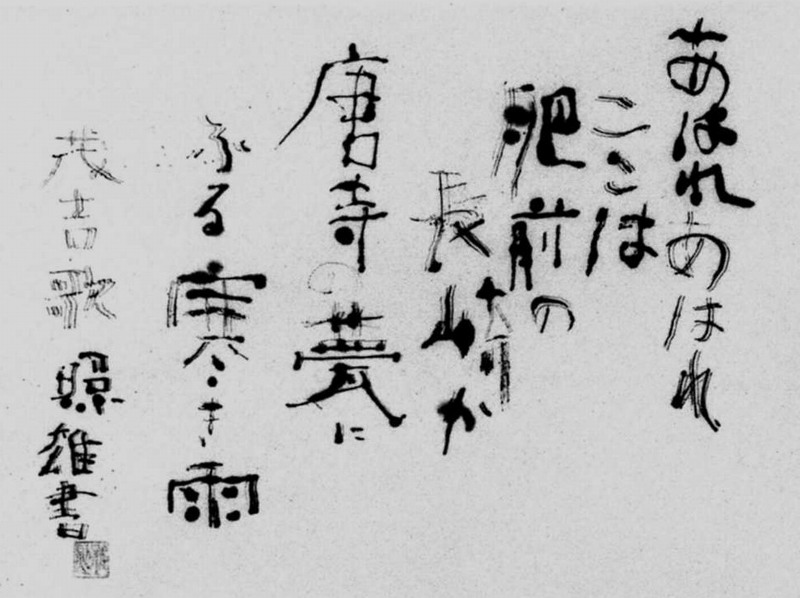 あはれあはれ
ここは
肥前の
長崎か
唐寺の甍に
ふる寒き雨
茂吉歌 照雄書